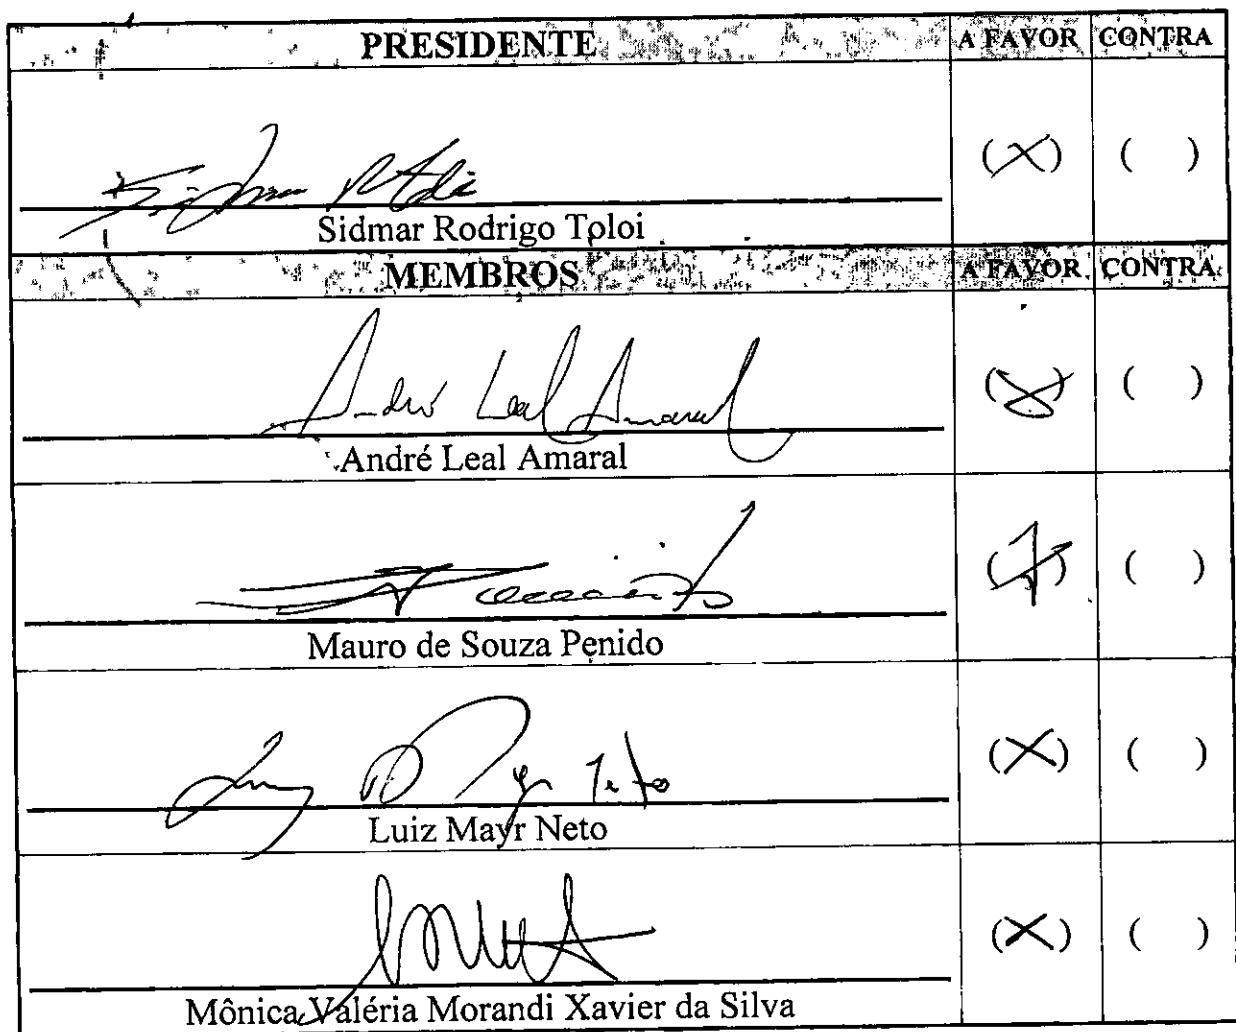 PRESIDENTE A FAVOR CONTRA
(X) ( )
Sidmar Rodrigo Toloi
MEMBROS A FAVOR CONTRA
André Leal Amaral (X) ( )
André Leal Amaral
( )
Mauro de Souza Penido
(X) ( )
Luiz Mayr Neto
(X) ( )
Mônica Valéria Morandi Xavier da Silva